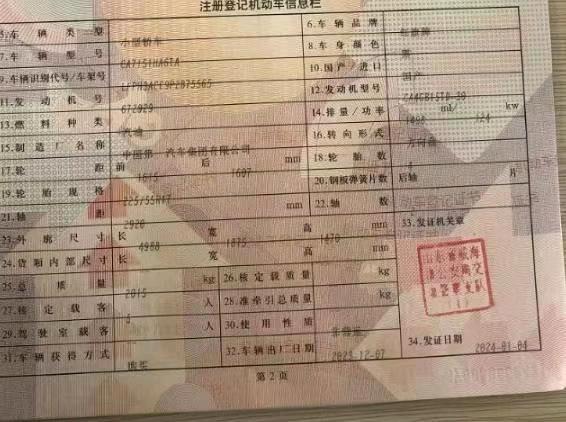 注册登记机动车信息栏
5.车辆类型 小型轿车 6.车辆品牌
7.车辆型号 CA7151HA6TA 8.车身颜色 黑
9.车辆识别代号/车架号 10.国产/进口 国产
11.发动机号 672029 12.发动机型号
13.燃料种类 汽油 14.排量/功率 ml/ kw
15.制造厂名称 中国第一汽车集团有限公司 16.转向形式 方向盘
17.轮距 前 1615 后 1607 mm 18.轮胎数 4
19.轮胎规格 225/55R17 20.钢板弹簧片数 后轴 片
21.轴距 2920 mm 22.轴数
23.外廓尺寸 长 4988 宽 1875 高 1470 mm 33.发证机关章
24.货厢内部尺寸 长 宽 高 mm
25.总质量 2015 kg 26.核定载质量 kg
27.核定载客 5 人 28.准牵引总质量 kg
29.驾驶室载客 人 30.使用性质 非营运
31.车辆获得方式 购买 32.车辆出厂日期 2023-12-07 34.发证日期 2024-01-04
第2页